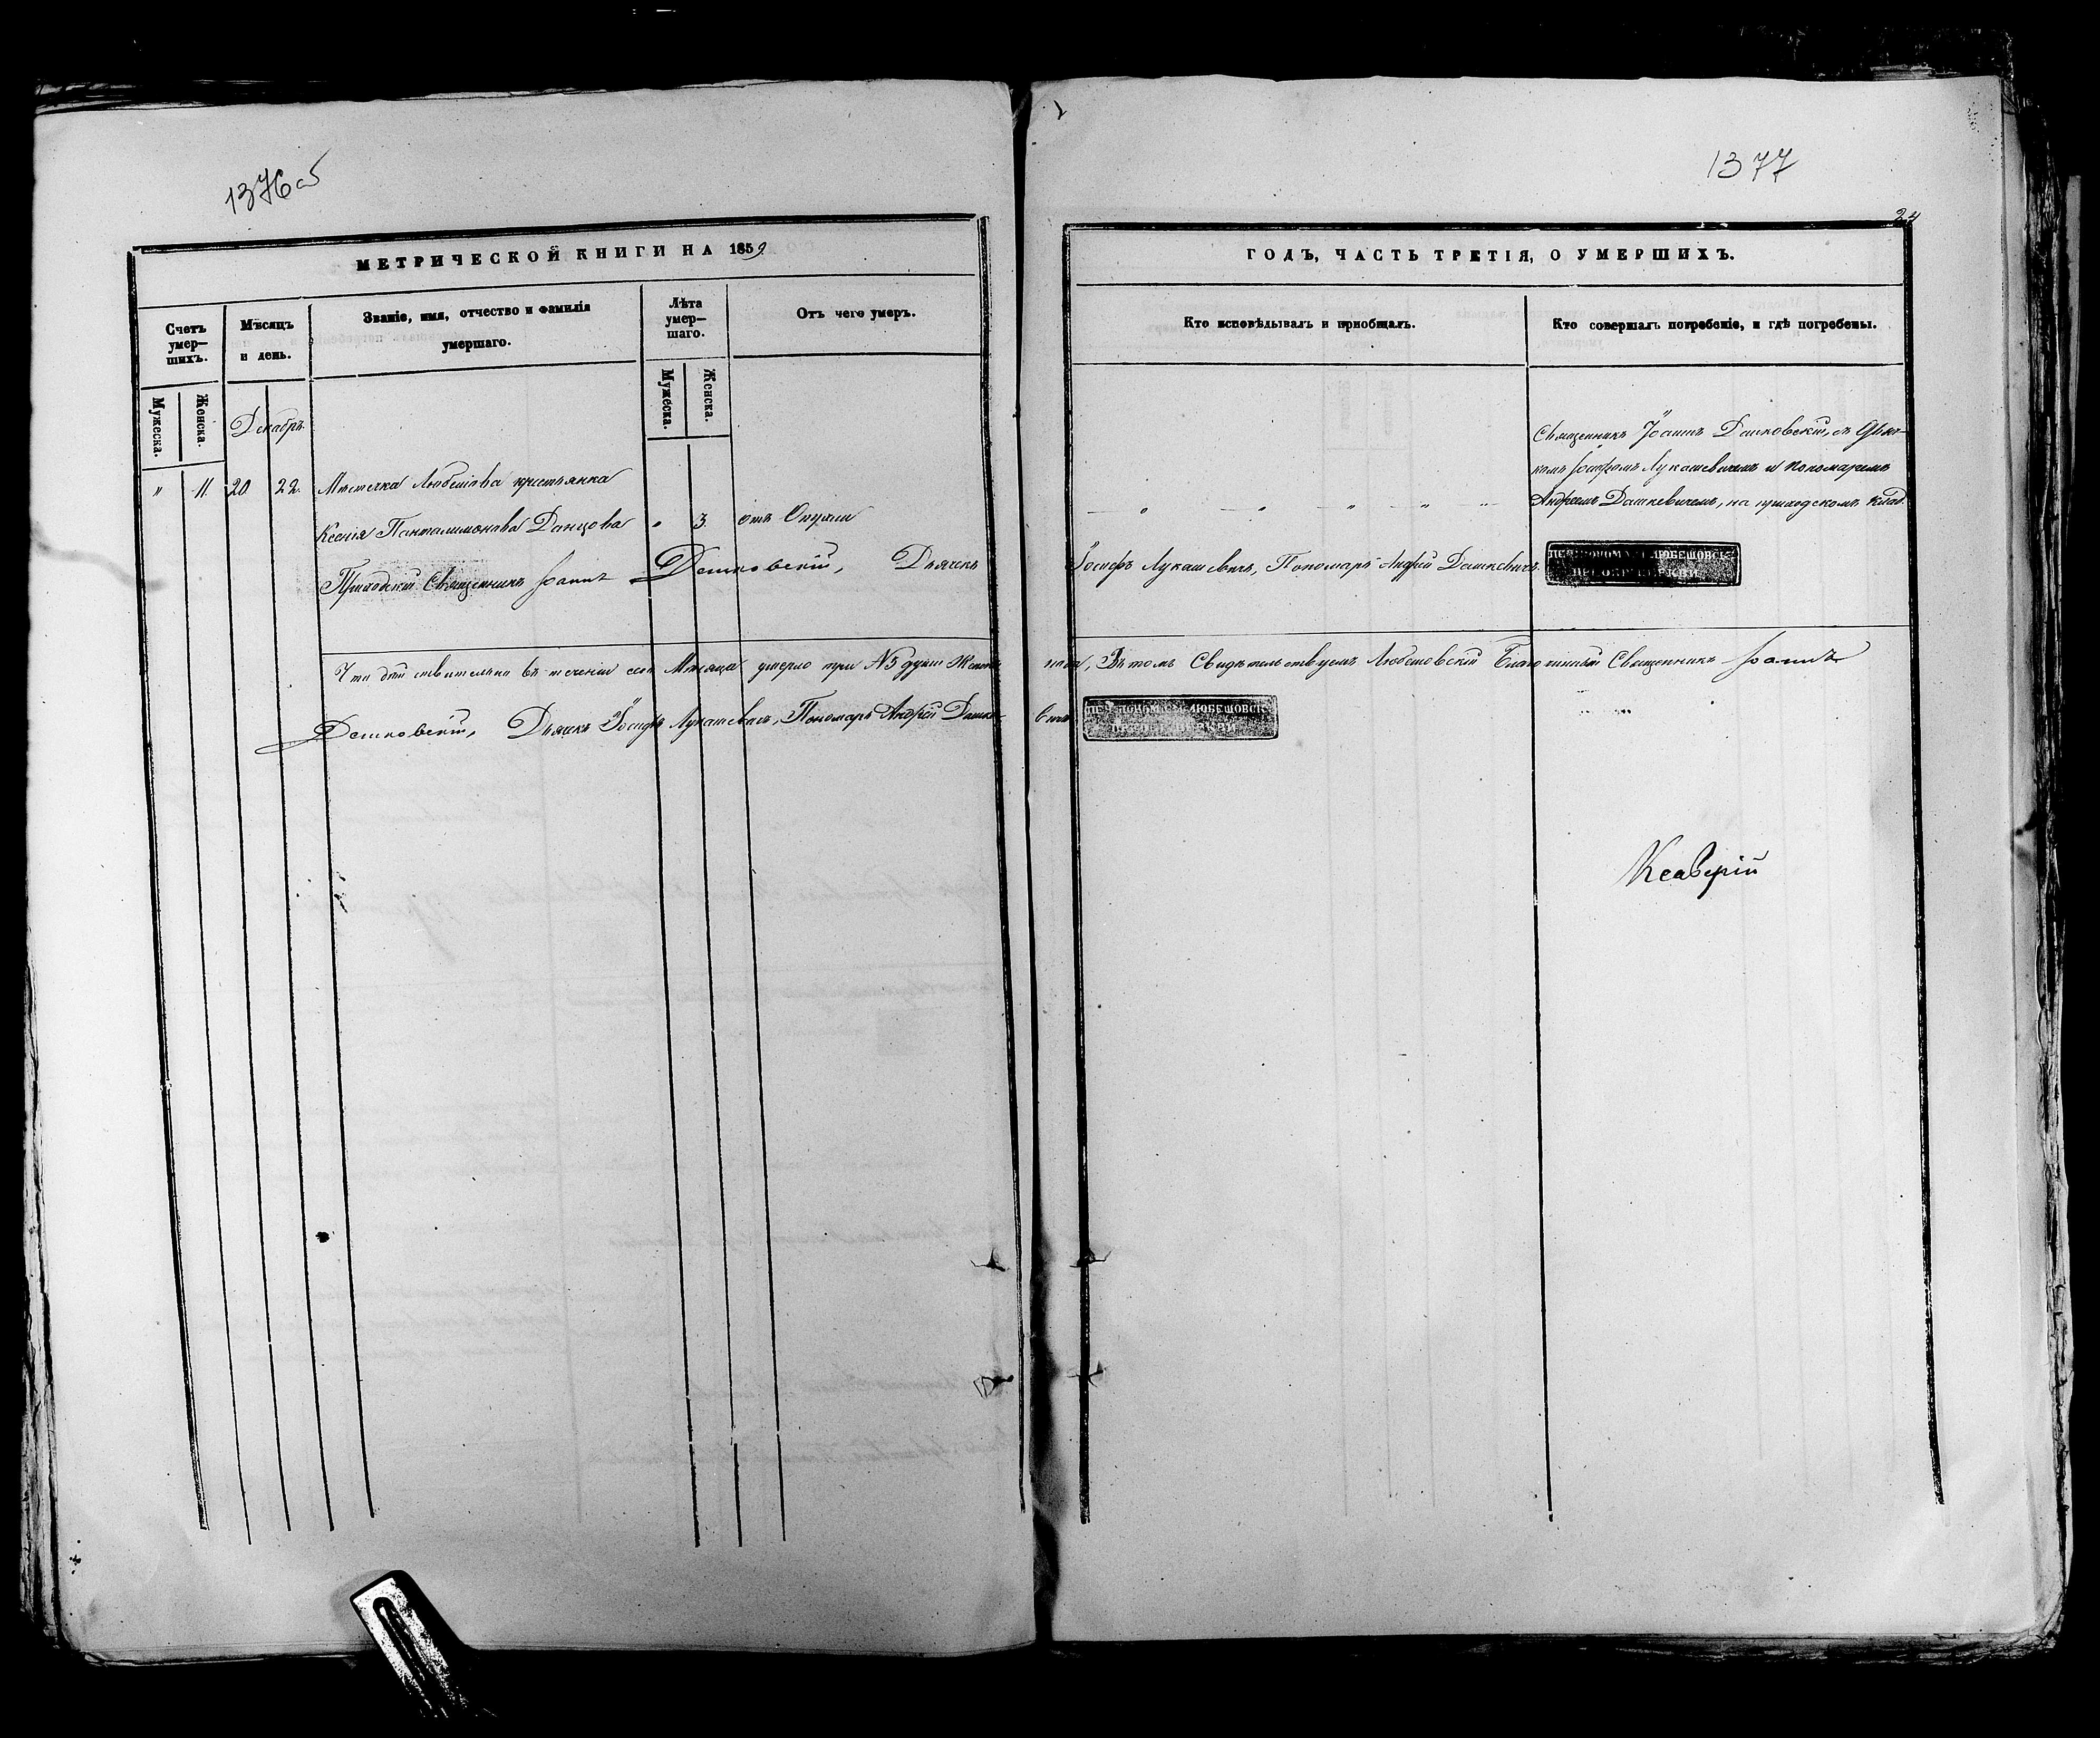 1376об
1377
24
МЕТРИЧЕСКОЙ КНИГИ НА 1859
ГОДЪ, ЧАСТЬ ТРЕТІЯ, О УМЕРШИХЪ.
Счетъ умер-шихъ.
Мужеска.
Женска.
Мѣсяцъ и день.
Званіе, имя, отчество и фамилія умершаго.
Лѣта умер-шаго.
Мужеска.
Женска.
Отъ чего умеръ.
Кто исповѣдывалъ и пріобщалъ.
Кто совершалъ погребеніе, и гдѣ погребены.
Декабрь
Священникъ Іоаннъ Дашковскій, съ Дьяч-
комъ Іосифомъ Лукашевичемъ и пономаремъ
Андреемъ Дашкевичемъ, на приходскомъ клад.
" 11. 20 22. Мѣстечка Любешова крестьянка
Ксенія Панталимонова Данцова " 3. отъ Опухли
Приходскій Священникъ Іоаннъ Дашковскій, Дьячекъ Іосифъ Лукашевичъ, Пономарь Андрей Дашкевичъ.
Что действительно въ теченіи сего Мѣсяца умерло при №3 душъ Женска пола, Въ томъ Свидѣтельствуемъ Любешовскій Благочинный Священникъ Іоаннъ
Дашковскій, Дьячекъ Іосифъ Лукашевичъ, Пономарь Андрей Дашкевичъ
ЛЮБЕШОВС
ЛЮБЕШОВС
Ксаверій